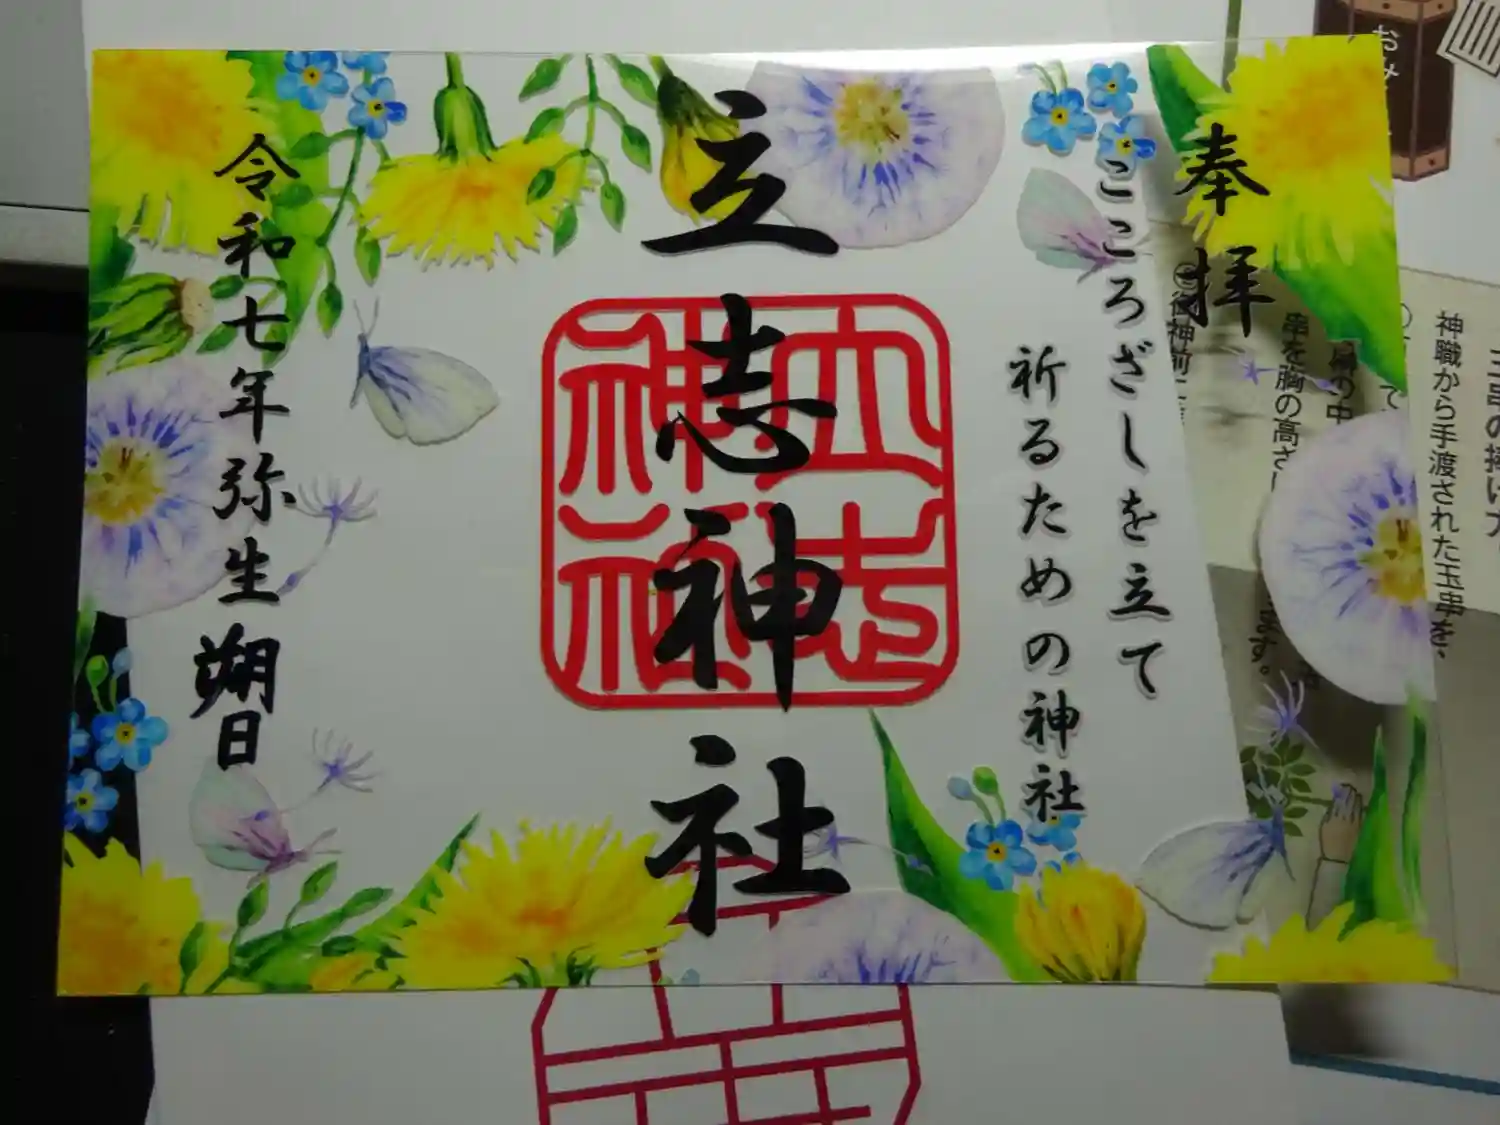 奉拝
こころざしを立て
祈るための神社
立志神社
立志神社
令和七年弥生朔日
おみ
神職から手渡された玉串を、
串を胸の高さに
ます。